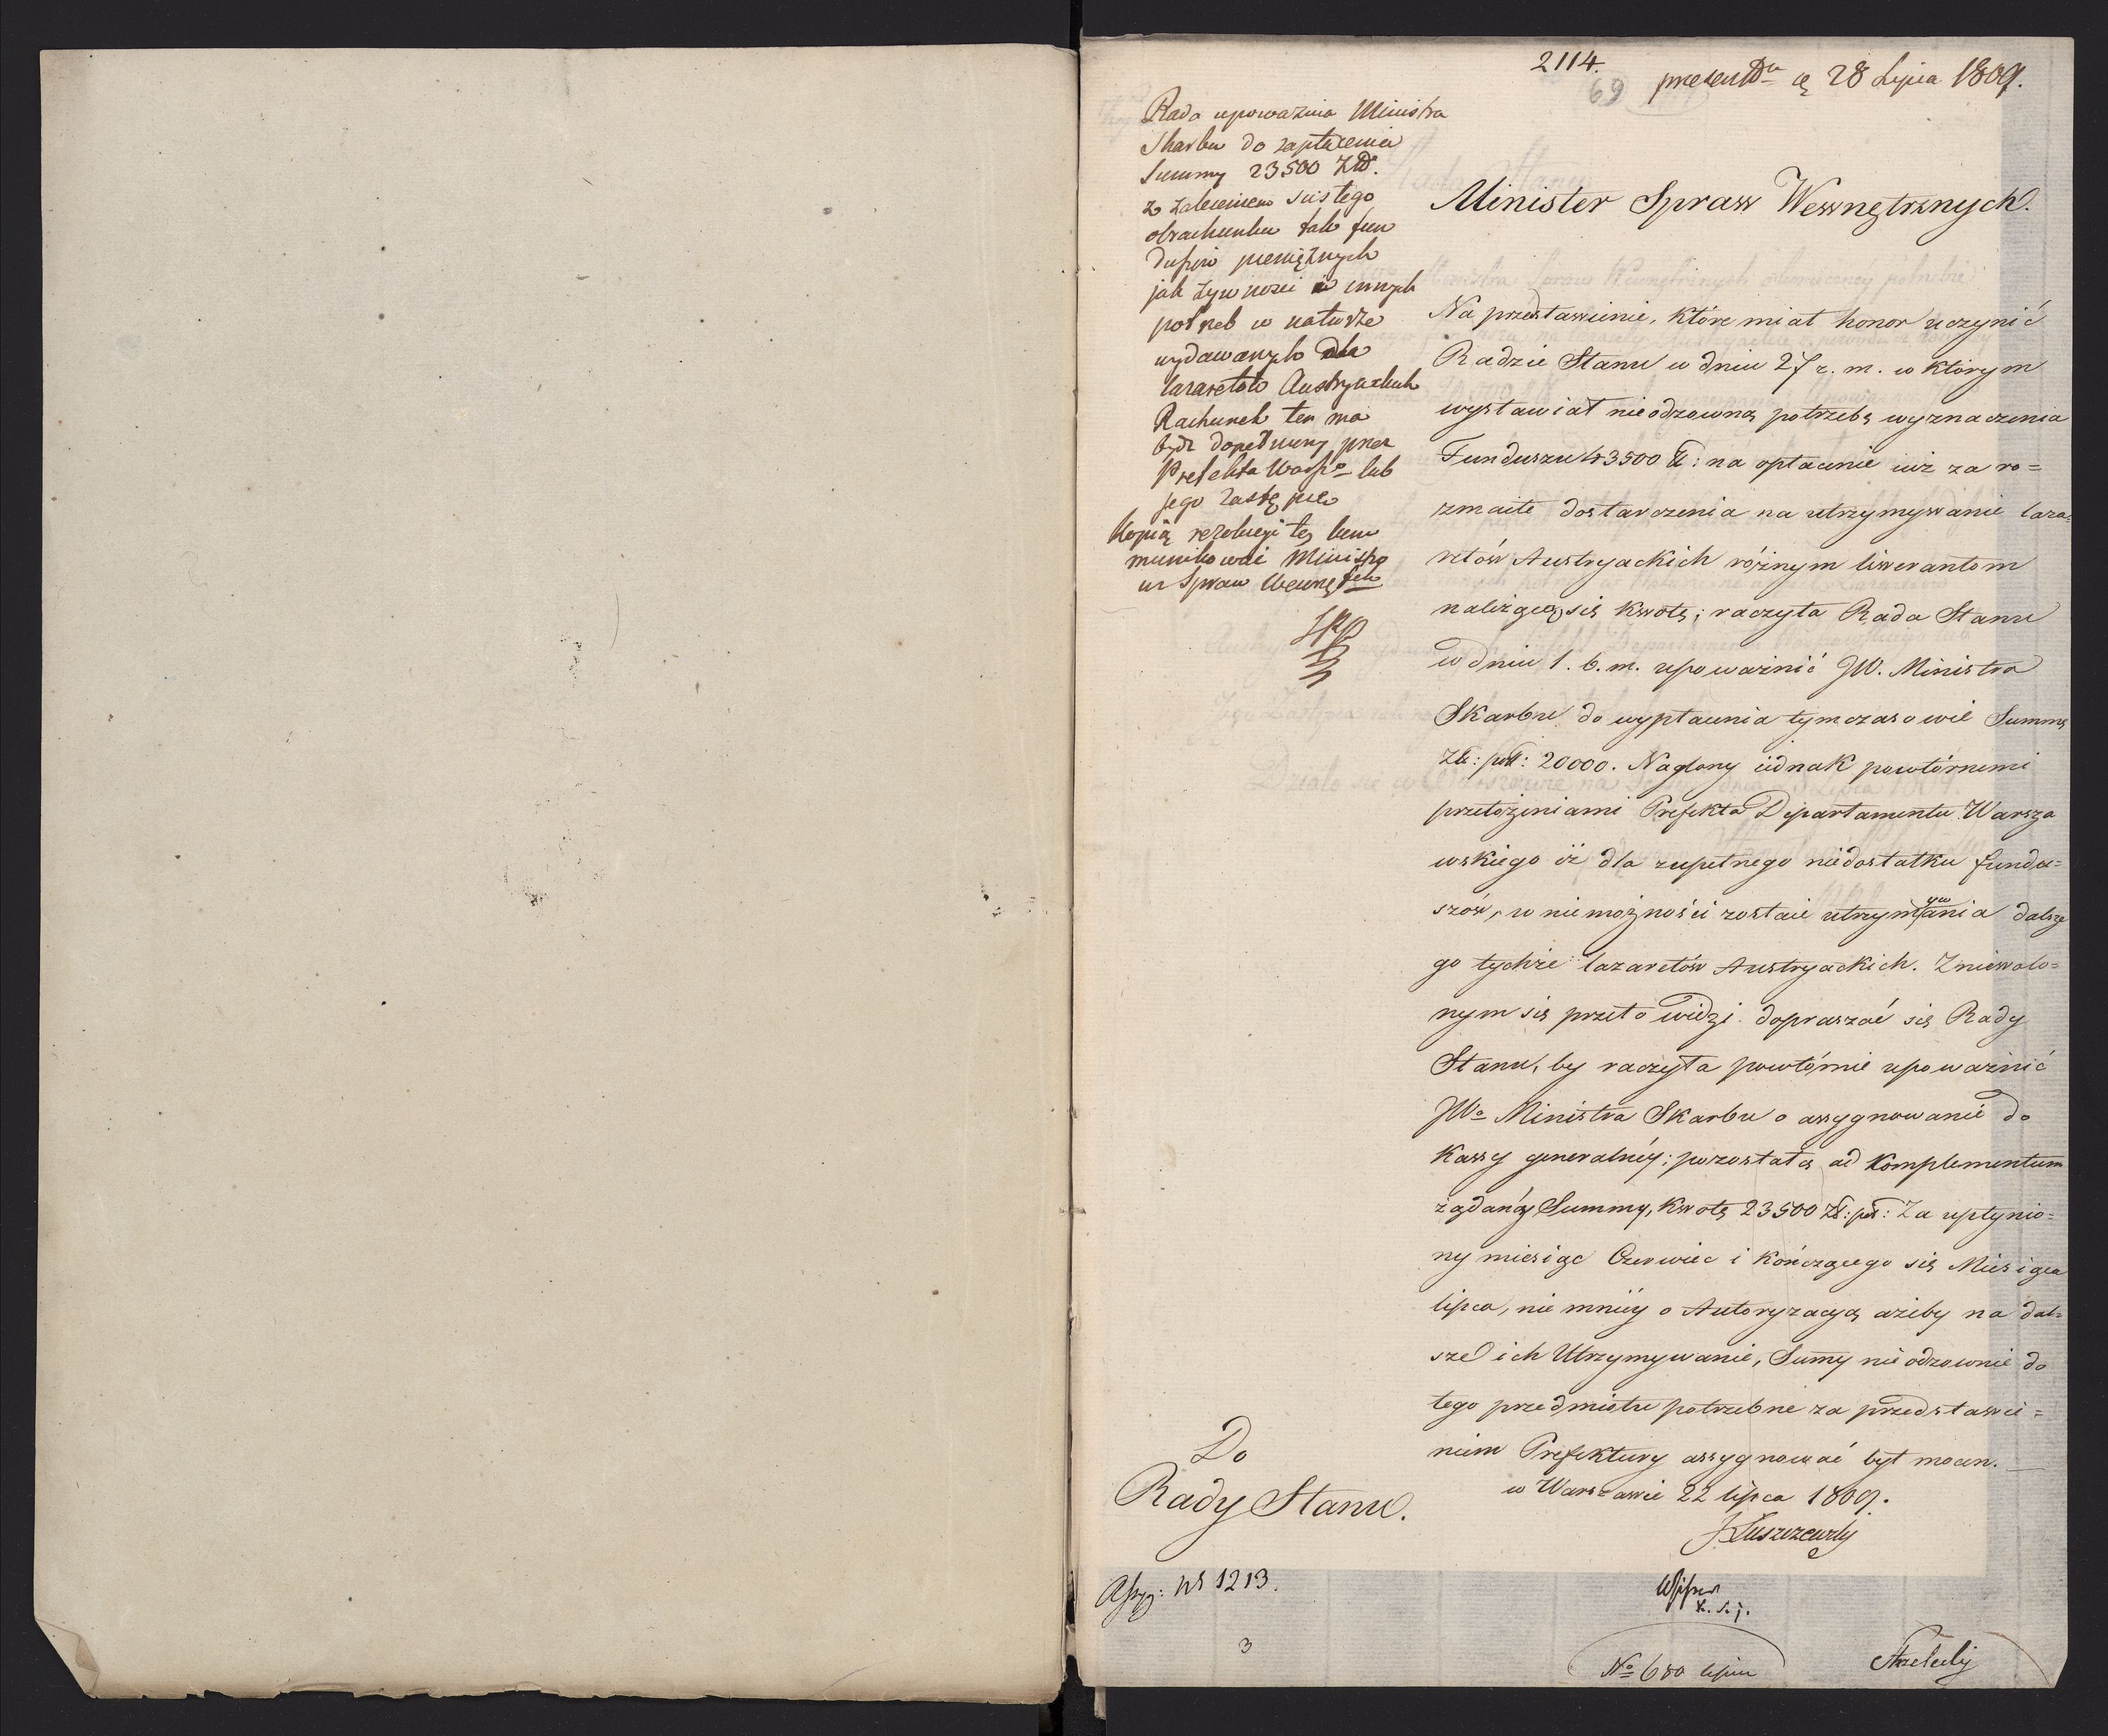 2114.
69
28 Lipca 1809.
Rada upoważnia Ministra
Skarbu do zapłacenia
Summy 23500 Złł.
z zaleceniem scisłego
obrachunku tak fun
duszów pieniężnych
jak żywnosci i innych
potrzeb w naturze
wydawanych dla
lazaretów Austryackich
Rachunek ten ma
bydz dopełniony przez
Prefekta Warsz. lub
jego Zastępcę
Kopią rezolucyi tey kom
munikować Ministro
wi Spraw Wewnętch
Minister Spraw Wewnętrznych.
Na przedstawienie, które miał honor uczynić
Radzie Stanu w dniu 27 z. m. w którym
wystawiał nieodzowną potrzebę wyznaczenia
Funduszu 43500 zł: na opłacenie iuż za ro=
zmaite dostarczenia na utrzymywanie laza=
retów Austryackich różnym liwerantom
należącą się kwotę; raczyła Rada Stanu
w dniu 1. b. m. upoważnić JW. Ministra
Skarbu do wypłacenia tymczasowie Summę
Złł: poll: 20000. Naglony iednak powtórnemi
przełożeniami Prefekta Departamentu Warsza
wskiego iż dla zupełnego niedostatku fundu=
szów, w niemożności zostaie utrzymywania dalsze
go tychże lazaretów Austryackich. Zniewolo=
nym się przeto widzi dopraszać się Rady
Stanu, by raczyła powtórnie upoważnić
JWo Ministra Skarbu o assygnowanie do
Kassy generalnéy; pozostałą ad Komplementum
żądanéy Summy, kwotę 23500 Zł: pol: Za upłynio=
ny miesiąc Czerwiec i kończącego się Miesiąca
lipca, nie mniéy o Autoryzacyą ażeby na dal=
sze ich Utrzymywanie, Sumy nieodzownie do
tego przedmiotu potrzebne za przedstawie=
niem Prefektury assygnować był mocen.
w Warszawie 22 lipca 1809.
JŁuszczewsky
Do
Rady Stanu.
Assyg: No 1213.
3
No 680 lipca